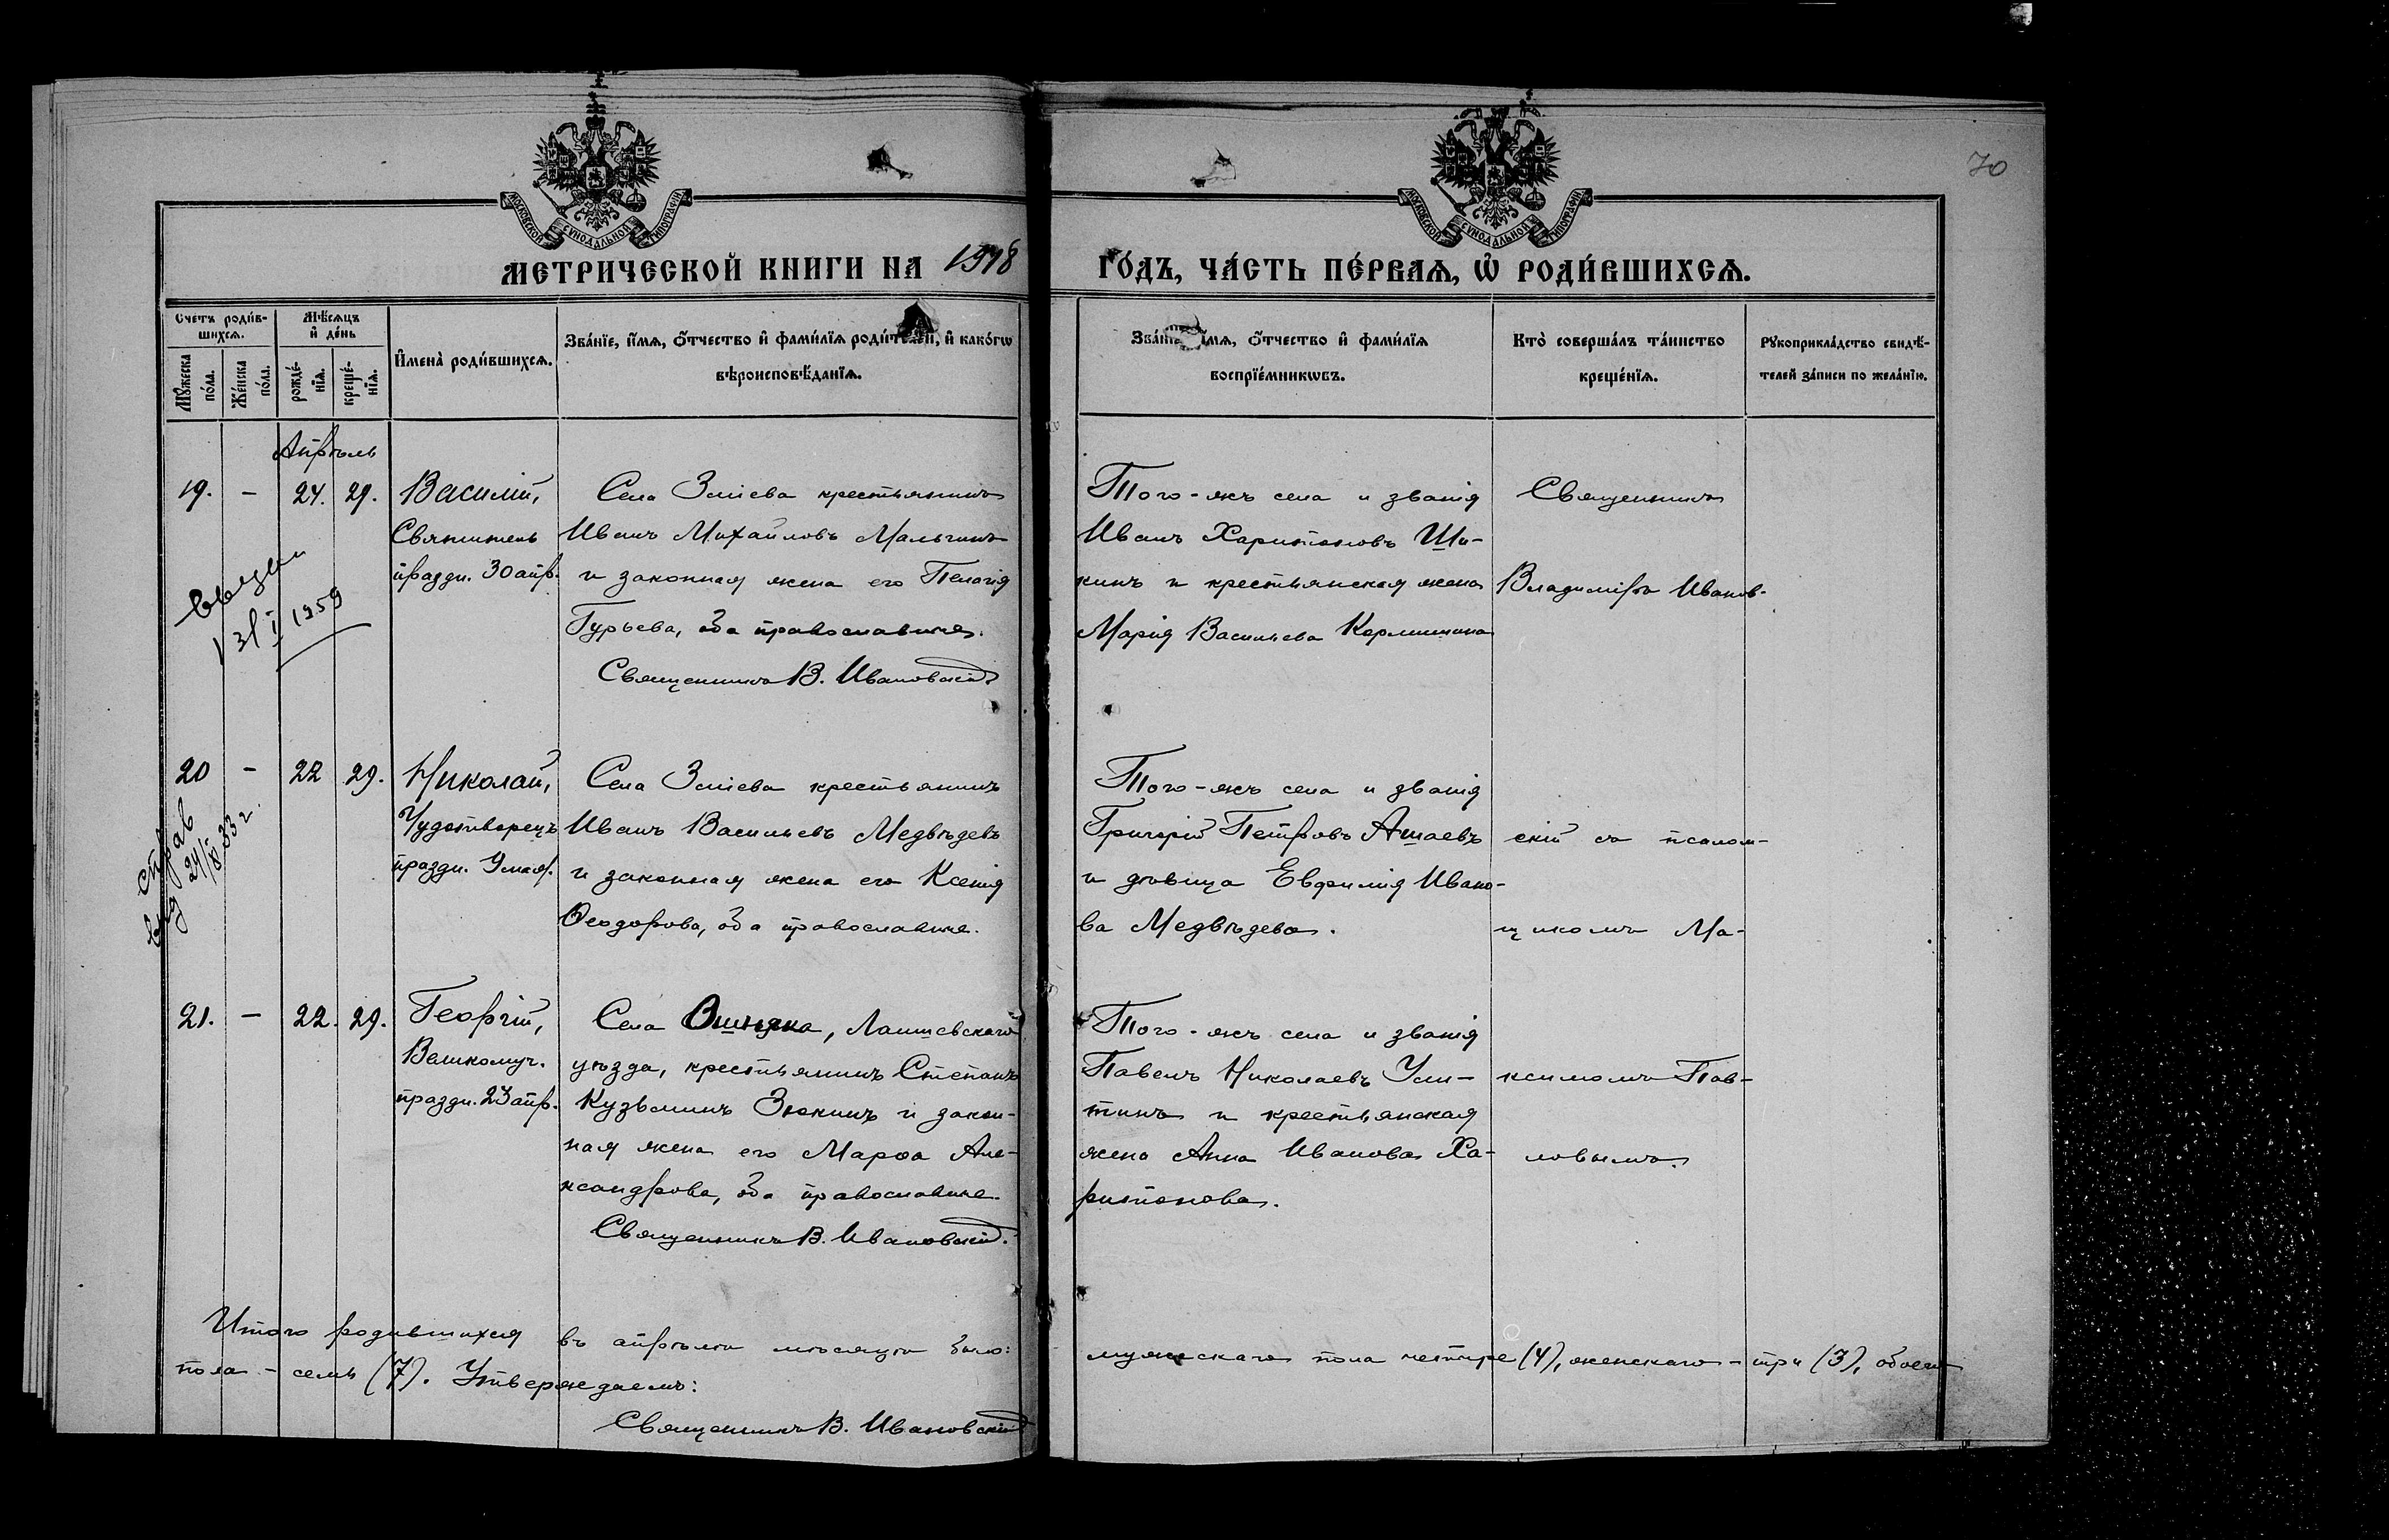 70
МОСКОВСКОЙ СУНОДАЛЬНОЙ ТИПОГРАФІИ
МОСКОВСКОЙ СУНОДАЛЬНОЙ ТИПОГРАФІИ
МЕТРИЧЕСКОЙ КНИГИ НА 1918 ГО́ДЪ, ЧА́СТЬ ПЕ́РВАѦ, Ѡ҆ РОДИ́ВШИХСѦ.
Счетъ роди́в-
шихсѧ.
Мꙋжеска
по́ла.
Же́нска
по́ла.
Мѣ́сѧцъ
и҆ де́нь
рожде́-
нїѧ.
креще́-
нїѧ.
И҆мена̀ роди́вшихсѧ.
Зва́нїе, и҆́мѧ, ѻ҆́тчество и҆ фами́лїѧ роди́телей, и҆ како́гѡ
вѣроисповѣ́данїѧ.
Зва́нїе, и҆́мѧ, ѻ҆́тчество и҆ фами́лїѧ
воспрїе́мникѡвъ.
Кто̀ соверша́лъ та́инство
креще́нїѧ.
Рꙋкоприкла́дство свидѣ́-
телей за́писи по жела́нїю.
Апрѣль
19. - 24. 29.
Василій,
Святитель
праздн. 30 апр.
Села Зміева крестьянинъ
Иванъ Михайловъ Мальгинъ
и законная жена его Пелагія
Гурьева, оба православные.
Священникъ В. Ивановскій
31/I 1959
Того-жъ села и званія
Иванъ Харитоновъ Ши-
кинъ и крестьянская жена
Марія Васильева
Священникъ
Владиміръ Иванов-
20 - 22 29.
Николай,
Чудотворецъ
праздн. 9 мая.
Села Зміева крестьянинъ
Иванъ Васильевъ Медвѣдевъ
и законная жена его Ксенія
Ѳеодорова, оба православные.
справ
24/8 33 г.
Того-жъ села и званія
Григорій Петровъ Ашаевъ
и дѣвица Евфимія Ивано-
ва Медвѣдева.
скій съ псалом-
щикомъ Ма-
21. - 22. 29.
Георгій,
Великомуч.
праздн. 23 апр.
Села Ошняка, Лаишевскаго
уѣзда, крестьянинъ Степанъ
Кузьминъ Зюкинъ и закон-
ная жена его Марѳа Але-
ксандрова, оба православные.
Священникъ В. Ивановскій.
Того-жъ села и званія
Павелъ Николаевъ Ули-
тинъ и крестьянская
жена Анна Иванова Ха-
ритонова.
ксимомъ Пав-
ловымъ.
Итого родившихся въ апрѣлѣ мѣсяцѣ было: мужескаго пола четыре (4), женскаго - три (3), обоего
пола - семь (7). Утверждаемъ:
Священникъ В. Ивановскій